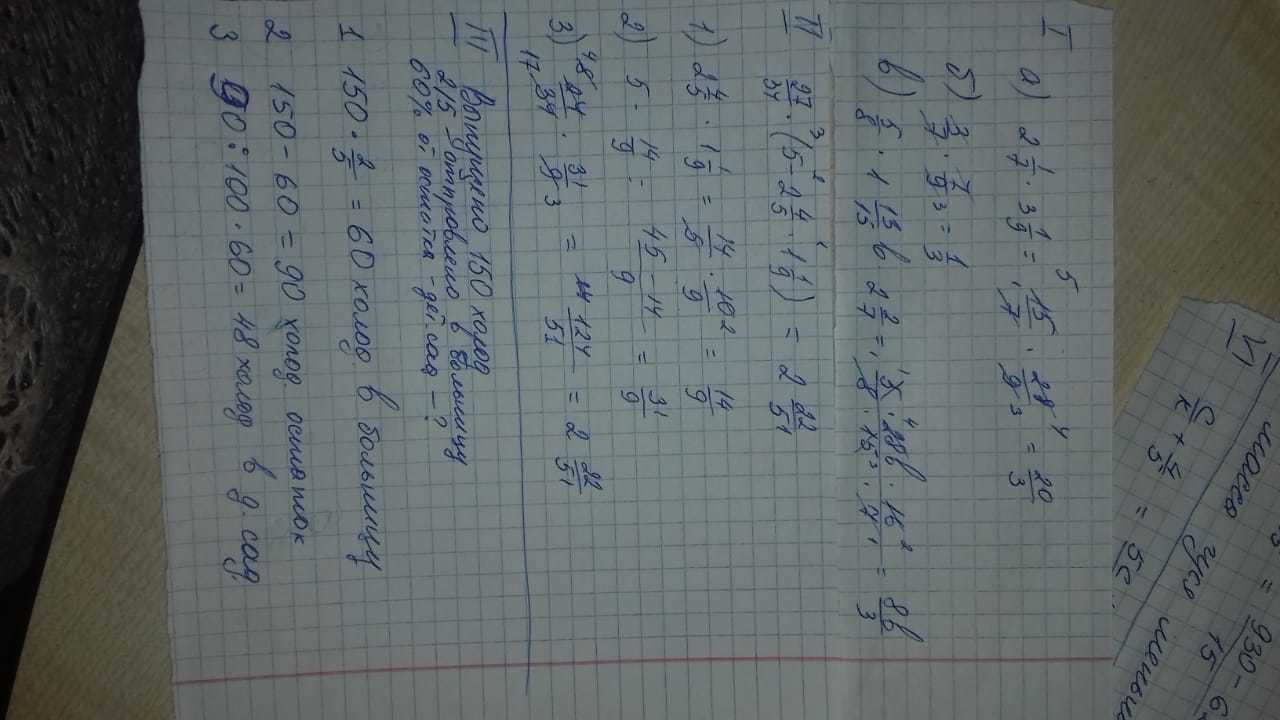 I а) 2 1/7 · 3 1/9 = 15/7 · 28/9 = 20/3
б) 3/7 · 7/9 = 1/3
в) 5/8 · 1 13/15 b 2 2/7 = 5 · 28b · 16 / 8 · 15 · 7 = 8b/3
II 27/34 · (5 - 2 4/5 · 1 1/9) = 2 22/51
1) 2 4/5 · 1 1/9 = 14/5 · 10/9 = 14/9
2) 5 - 14/9 = 45 - 14 / 9 = 31/9
3) · 31/9 = 124/51 = 2 22/51
III Выпущено 150 холод
2/5 - отправлено в больницу
60% от остатка - дет сад - ?
1 150 · 2/5 = 60 холод в больницу
2 150 - 60 = 90 холод остаток
3 90 : 100 · 60 = 48 холод в д сад
VI масса гуся меньш
c/к + 4/5 = 5c
= 930 - 6
15